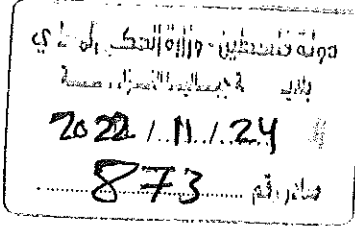 دولة فلسطين - وزارة الحكم المحلي
بلدية
2022 / 11 / 24
صادر رقم 873